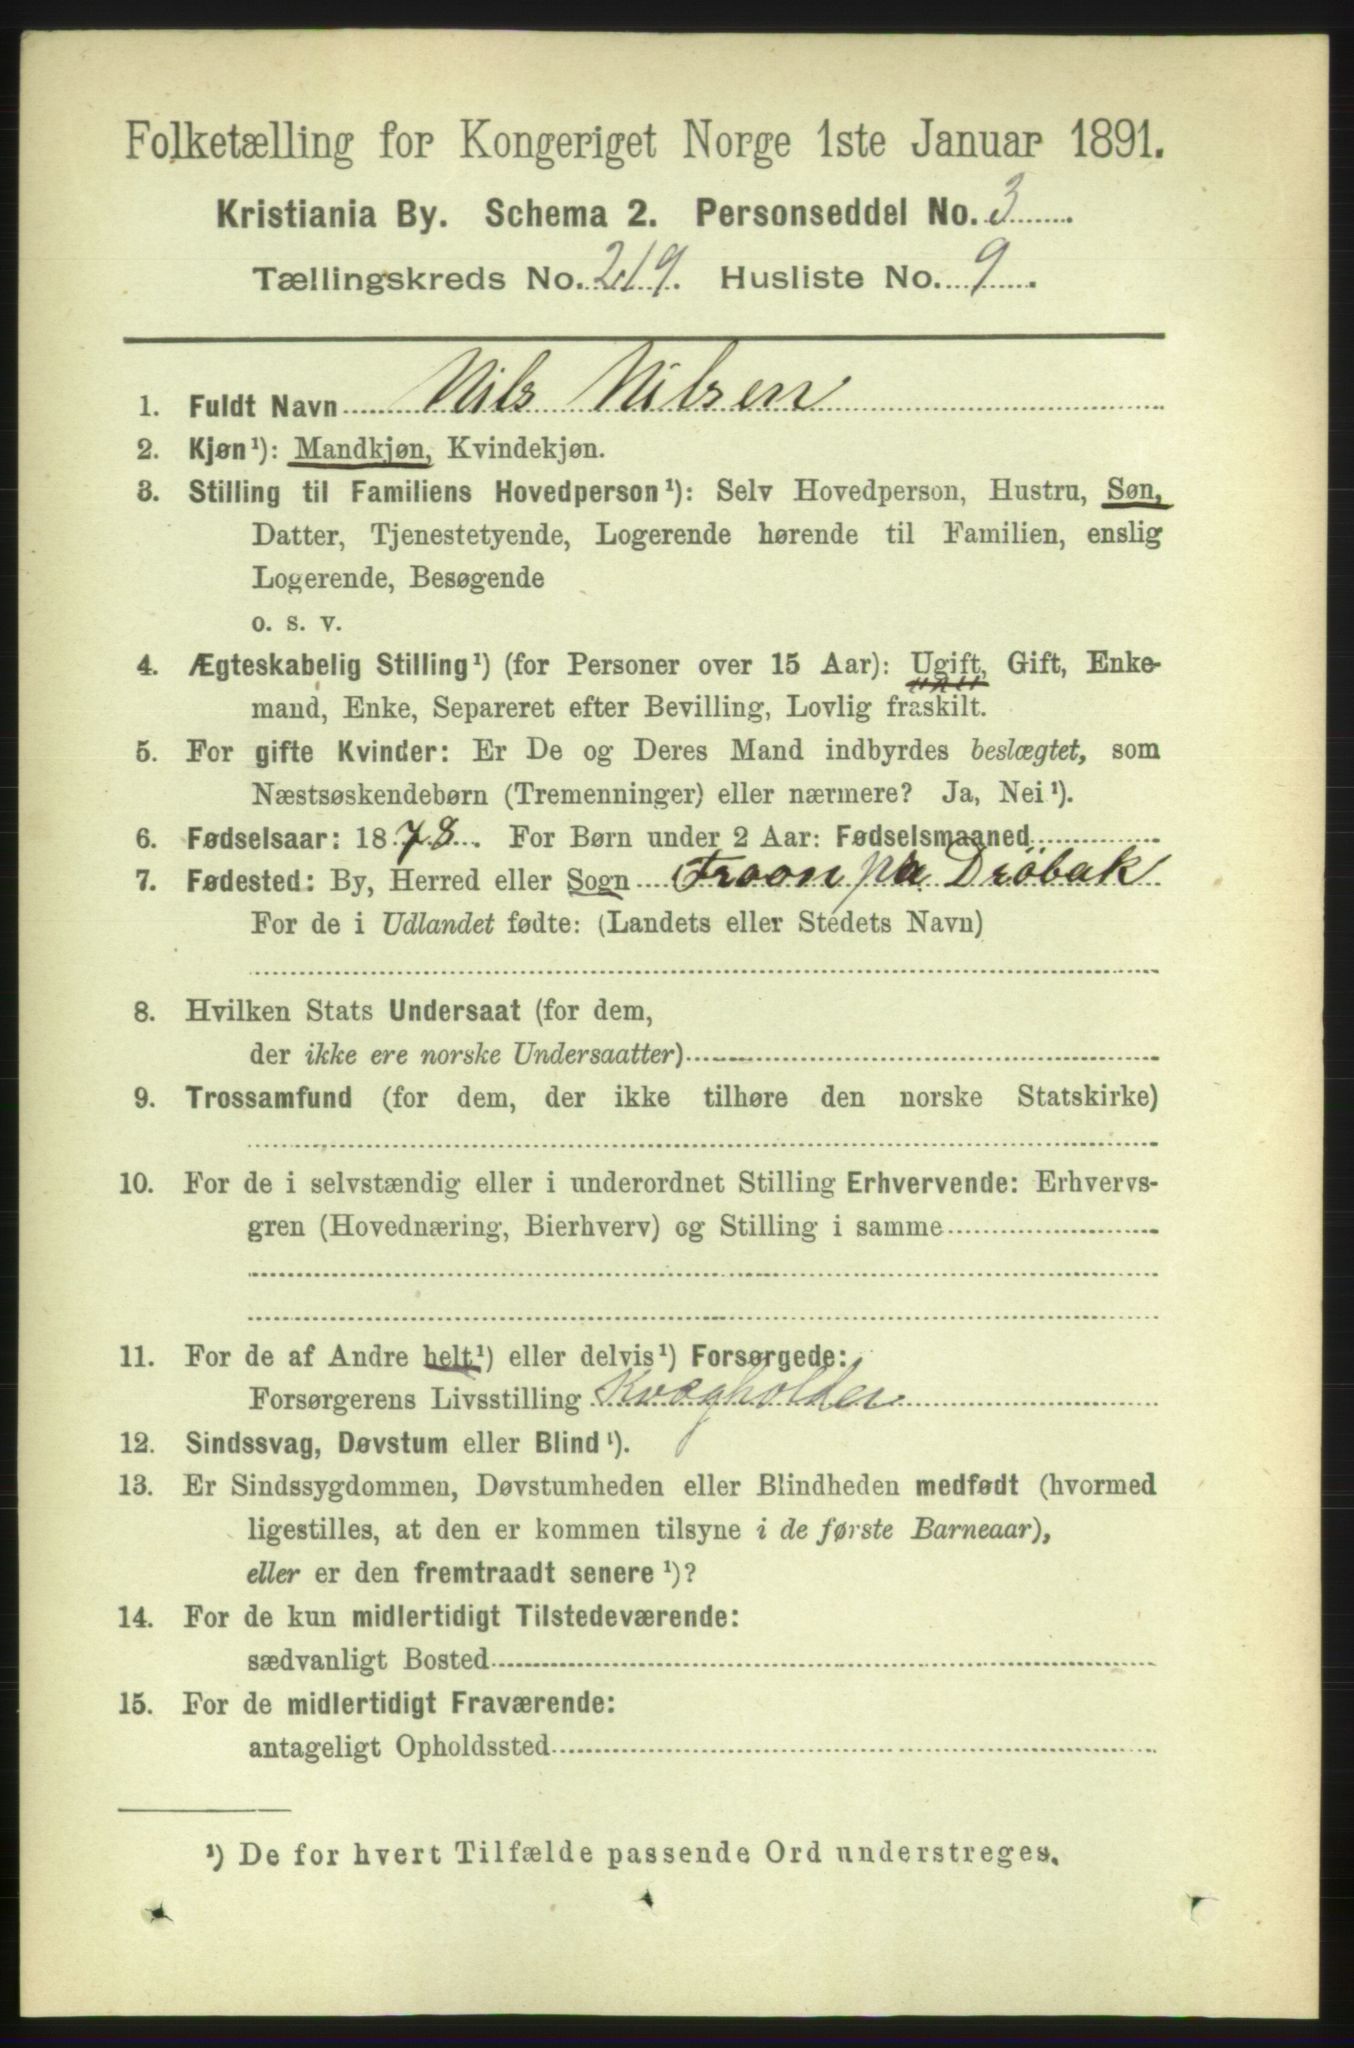 Folketælling for Kongeriget Norge 1ste Januar 1891.
Kristiania By. Schema 2. Personseddel No. 3
Tællingskreds No. 219. Husliste No. 9.
1. Fuldt Navn Nils Nilsen
2. Kjøn¹): Mandkjøn, Kvindekjøn.
3. Stilling til Familiens Hovedperson¹): Selv Hovedperson, Hustru, Søn,
Datter, Tjenestetyende, Logerende hørende til Familien, enslig
Logerende, Besøgende
o. s. v.
4. Ægteskabelig Stilling¹) (for Personer over 15 Aar): Ugift, Gift, Enke-
mand, Enke, Separeret efter Bevilling, Lovlig fraskilt.
5. For gifte Kvinder: Er De og Deres Mand indbyrdes beslægtet, som
Næstsøskendebørn (Tremenninger) eller nærmere? Ja, Nei¹).
6. Fødselsaar: 1878. For Børn under 2 Aar: Fødselsmaaned
7. Fødested: By, Herred eller Sogn Froon pr Drøbak
For de i Udlandet fødte: (Landets eller Stedets Navn)
8. Hvilken Stats Undersaat (for dem,
der ikke ere norske Undersaatter)
9. Trossamfund (for dem, der ikke tilhøre den norske Statskirke)
10. For de i selvstændig eller i underordnet Stilling Erhvervende: Erhvervs-
gren (Hovednæring, Bierhverv) og Stilling i samme
11. For de af Andre helt¹) eller delvis¹) Forsørgede:
Forsørgerens Livsstilling Kvægholder
12. Sindssvag, Døvstum eller Blind¹).
13. Er Sindssygdommen, Døvstumheden eller Blindheden medfødt (hvormed
ligestilles, at den er kommen tilsyne i de første Barneaar),
eller er den fremtraadt senere¹)?
14. For de kun midlertidigt Tilstedeværende:
sædvanligt Bosted
15. For de midlertidigt Fraværende:
antageligt Opholdssted
¹) De for hvert Tilfælde passende Ord understreges.